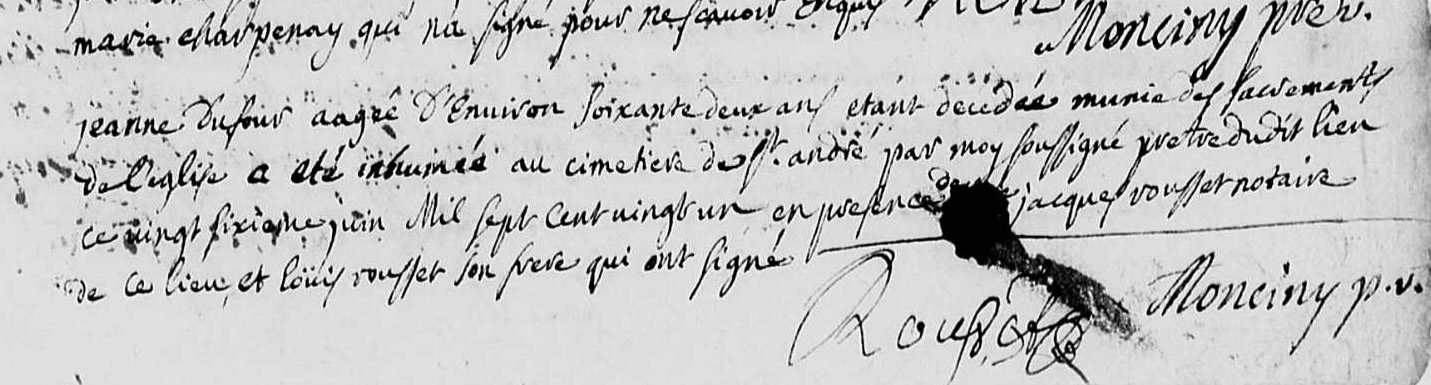 marie charpenay qui na signé pour ne scavoir Enquis
Monciny pre v.
jeanne Dufour aagée D'Environ soixante deux ans etant decedée munie des sacrements
de l'eglise a eté inhumée au cimetiere de st. andré par moy soussigné pretre dudit lieu
ce vingt sixieme juin Mil sept Cent vingt un en presence de jacques rousset notaire
de Ce lieu, et loüis rousset son frere qui ont signé
Rousset Monciny p.v.